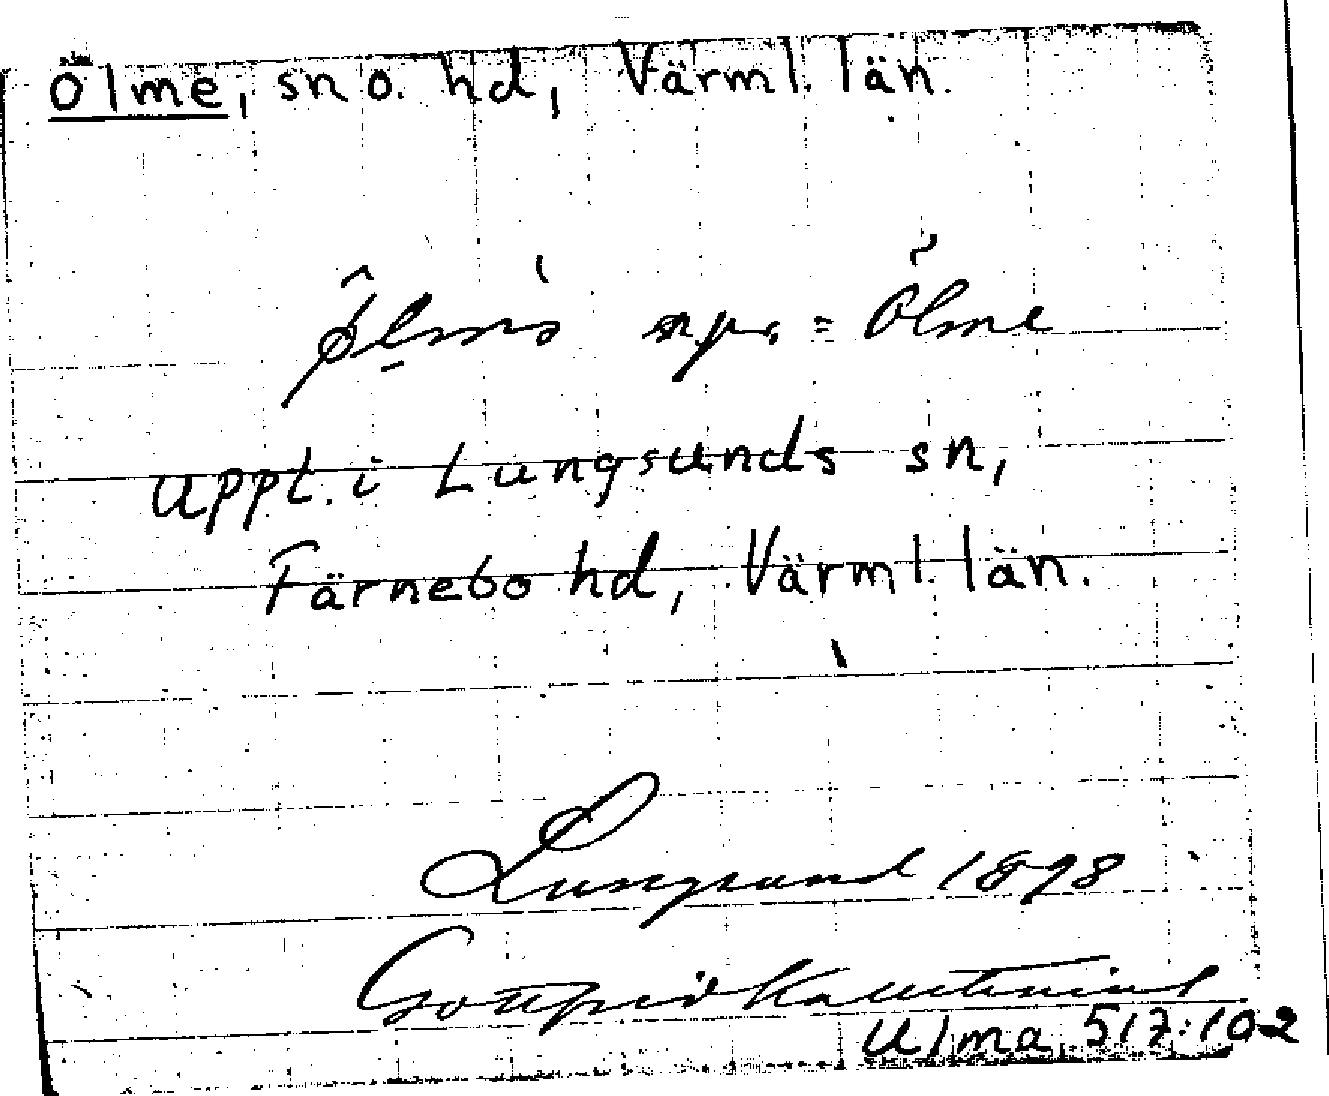 Ölme, sn o. hd, Värml. län.
npr. = Ölme
uppt. i Lungsunds sn,
Färnebo hd, Värml. län.
Lungsund 1898
Gottfrid Kallstenius
Ulma 517:102